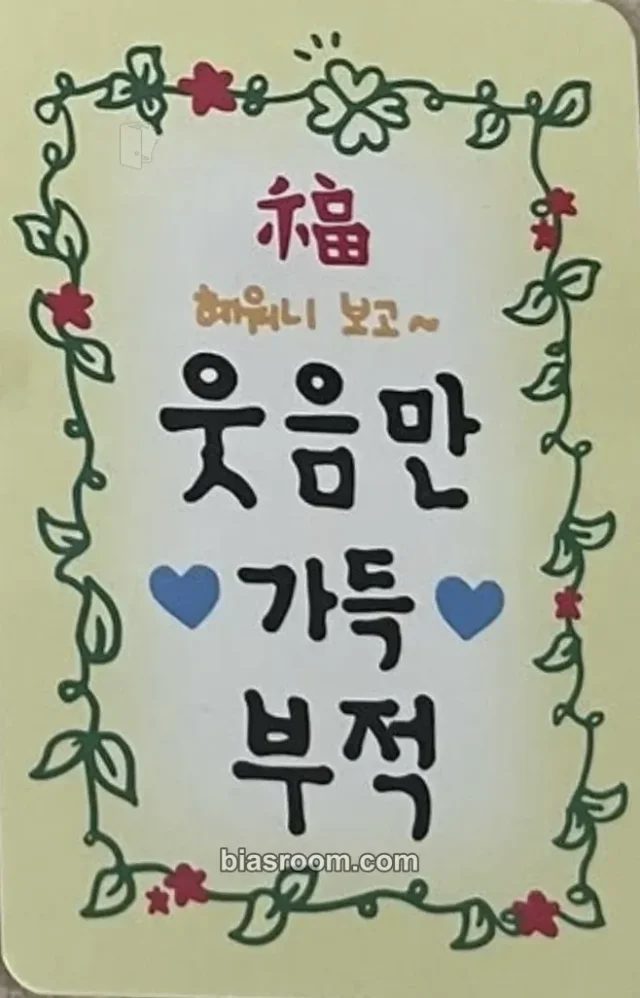 福
혜워니 보고~
웃음만
가득
부적
biasroom.com